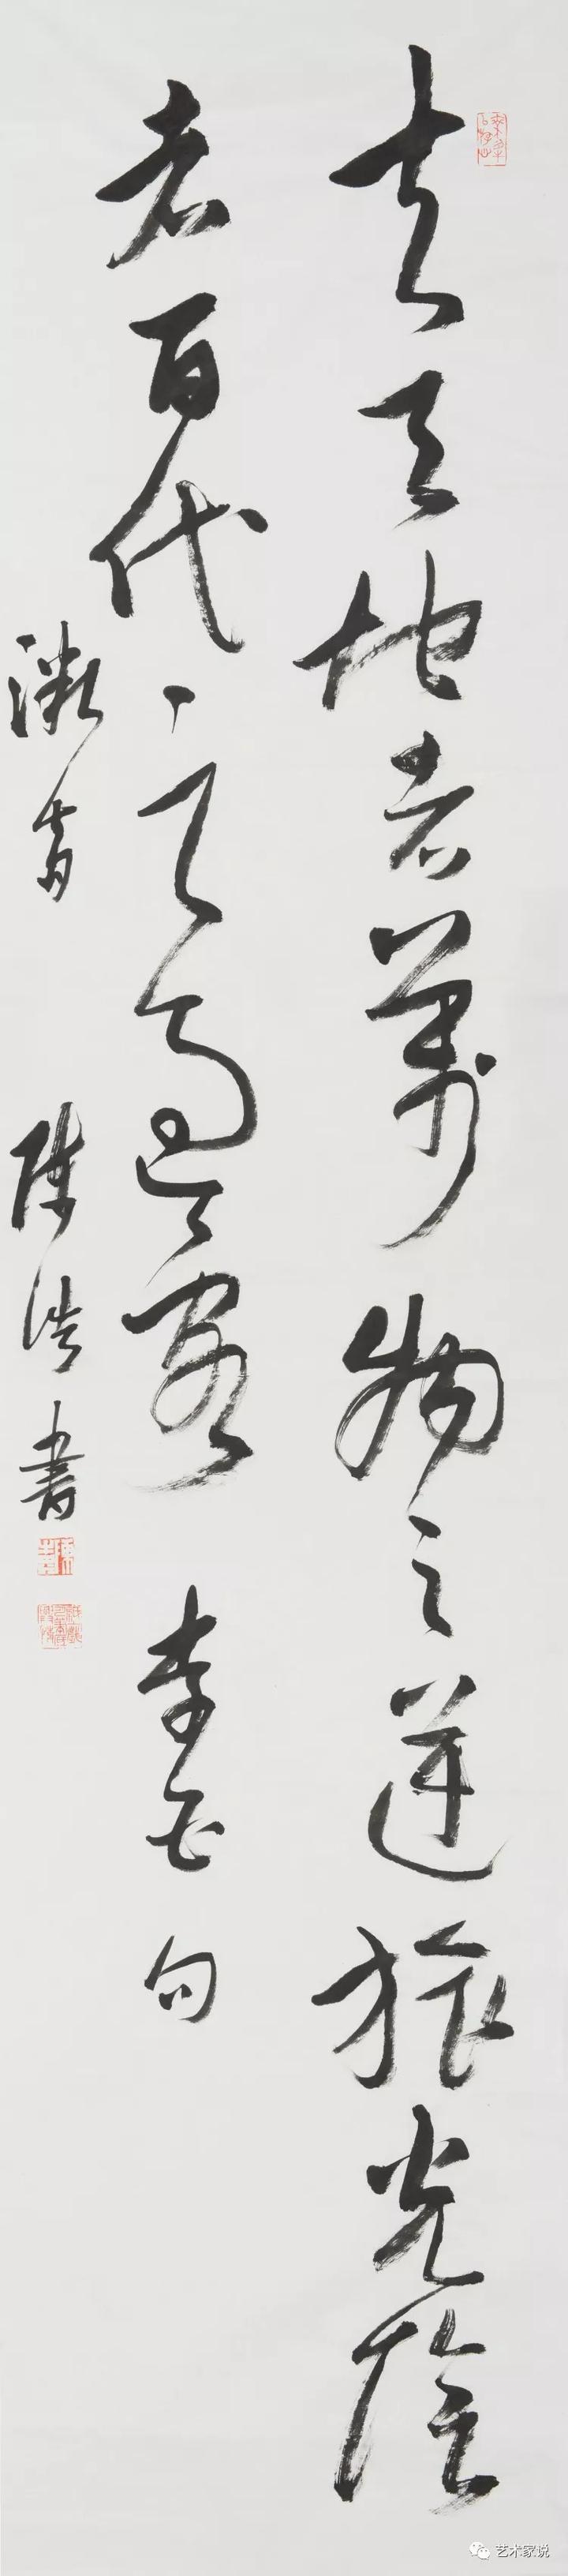 夫天地者萬物之逆旅光陰
者百代之過客 李白句
陳浩書
艺术家说